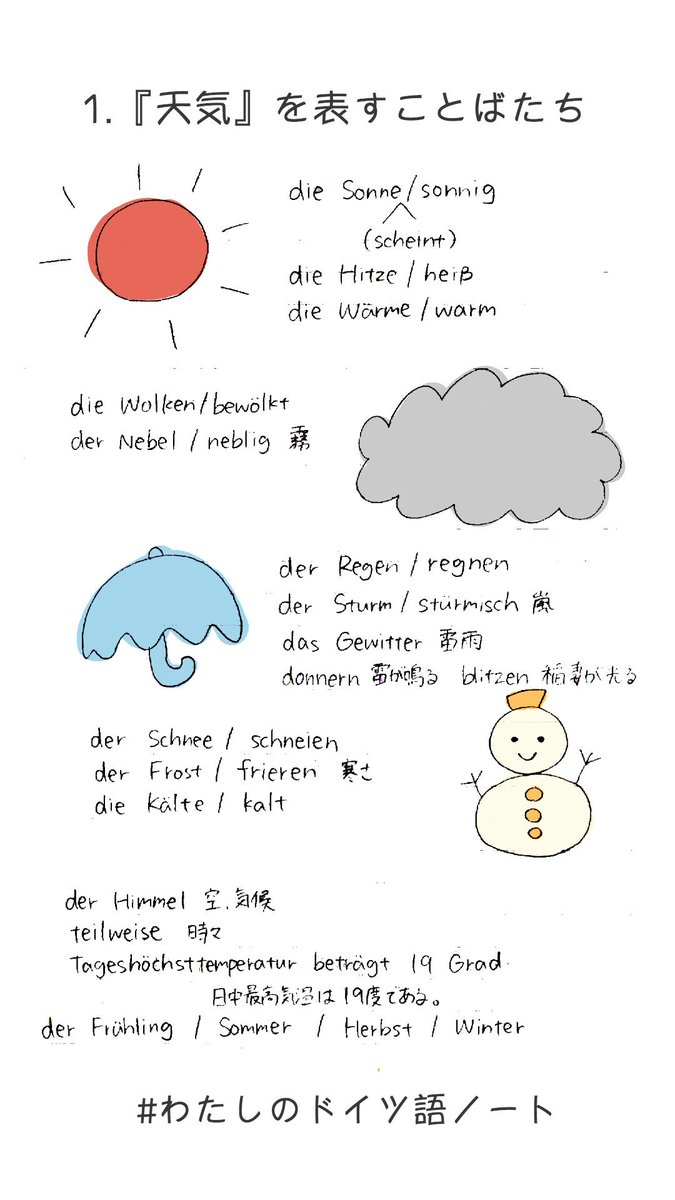 1.『天気』を表すことばたち
die Sonne/sonnig
(scheint)
die Hitze/heiß
die Wärme/warm
die Wolken/bewölkt
der Nebel/neblig 霧
der Regen/regnen
der Sturm/stürmisch 嵐
das Gewitter 雷雨
donnern 雷が鳴る blitzen 稲妻が光る
der Schnee/schneien
der Frost/frieren 寒さ
die Kälte/kalt
der Himmel 空、気候
teilweise 時々
Tageshöchsttemperatur beträgt 19 Grad
日中最高気温は19度である。
der Frühling / Sommer / Herbst / Winter
#わたしのドイツ語ノート